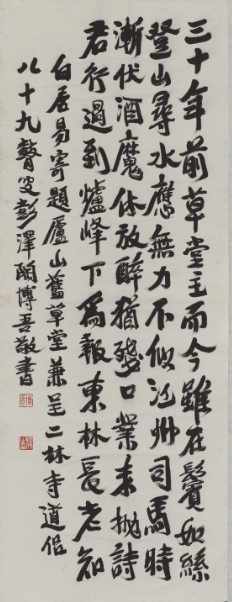 三十年前草堂主而今雖在鬢如絲
登山尋水應無力不似江州司馬時
漸伏酒魔休放醉猶殘口業未抛詩
君行過到爐峰下爲報東林長老知
白居易寄題廬山舊草堂兼呈二林寺道侶
八十九叟彭澤陶博吾敬書